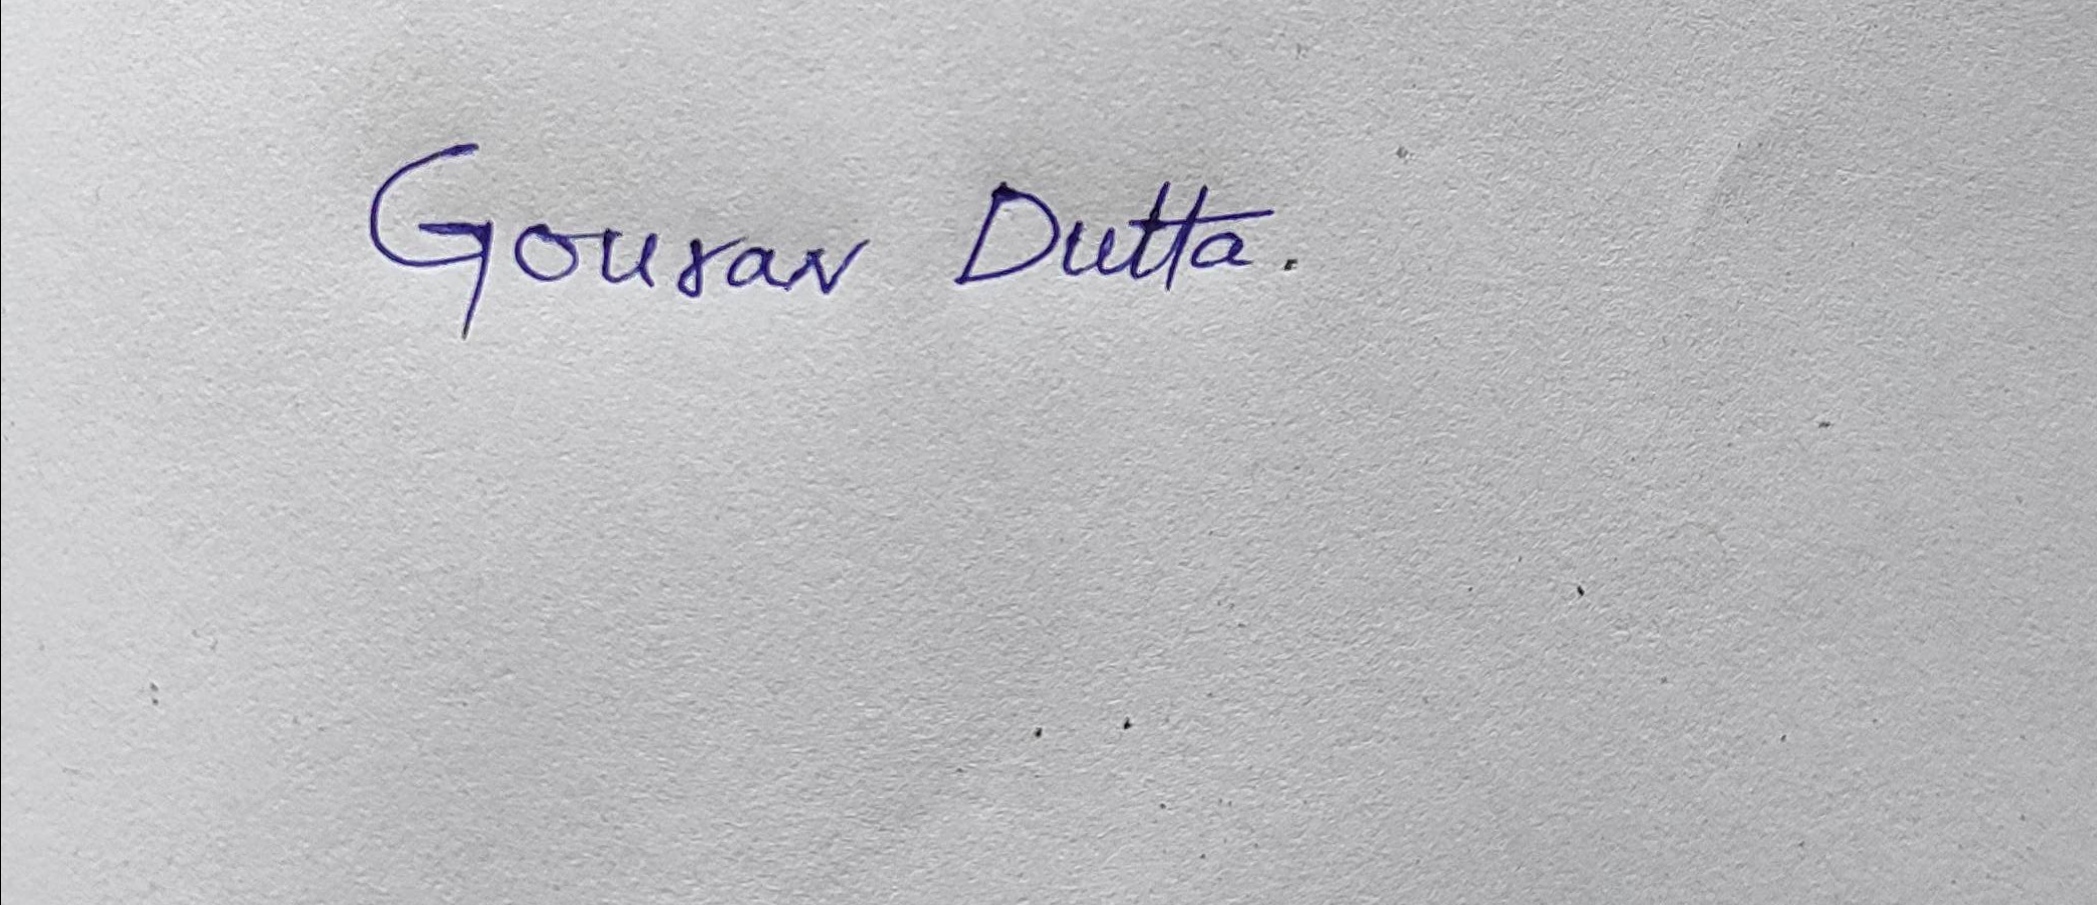 Gourav Dutta.